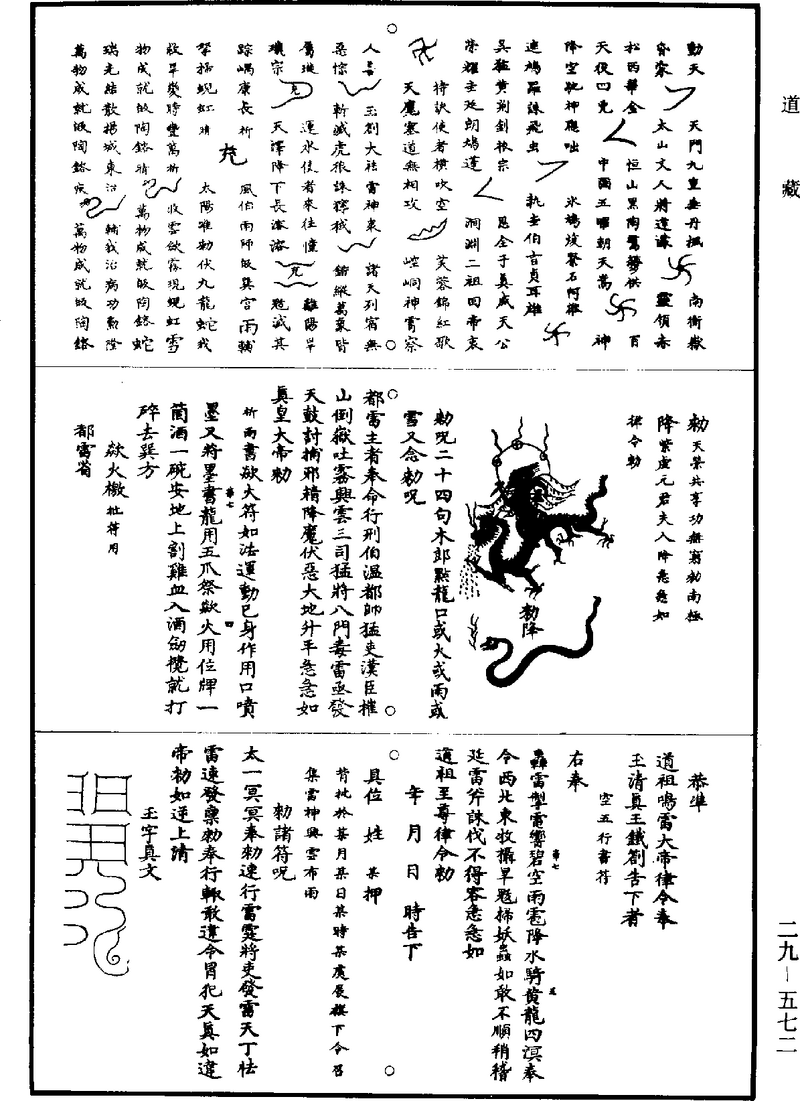 道藏
動天　天門九重無丹楓　南衡嶽
帝蒙　太山丈人將逵濛　靈領赤
松西華金　恒山黑陶鷔勢供　百
天役四兇　中國五曜朝天嵩　神
降空乾神聰咄　氷鳩炭緊石阿雄
連鳩羅誅飛虫　執무伯言貞耳雄
吳猛黄荊劍振宗　恩全子真威天公
榮耀무延朗鳩蓬　洞淵二祖四帝哀
持訣使者横吹空　芙蓉錦紅歌
天魔塞道無相攻　崆峒神霄察
人善　玉劄大祛雷神衷　諸天列宿無
斬滅虎狼誅豺　錦縱萬象皆
運水使者來往憧　離陽旱
壤宗　天澤降下長溱溶　尩滅其
踪嵎康長祈　風伯雨師攸其宫　雨輔
拏捁蜺虹晴　太陽唯勅伏九龍　蛇我
收旱變時豐萬祈　收雲斂霧現蜺虹　雪
物成就攸陶鎔晴　萬物成就攸陶鎔　蛇
瑞光結散楊城東治　輔我治病功勳隆
萬物成就攸陶鎔疾　萬物成就攸陶鎔
勑　天榮共享功無窮勑南極
降　紫虛元君夫人降急急如
律令勅
勅降
勅呪二十四句木郎㸃龍口或火或雨或
雪又念勅呪
都雷主者奉命行刑伯温都帥猛吏漢臣摧
山倒嶽吐霧興雲三司猛將八門毒雷亟發
天鼓討捕邪精降魔伏惡大地升平急急如
真皇大帝勅
祈雨書欻火符如法運動已身作用口噴
墨又將墨書龍用五爪祭欻火用位牌一
第七
四
箇酒一碗安地上割雞血入酒劒攪就打
碎去巽方
欻火檄批符用
都雷菊
恭準
道祖鳴雷大帝律令奉
玉清真王鐵劄告下者
空五行書符
右奉
轟雷掣電響碧空雨雹降水騎黄龍四溟奉
第七
五
令西北東收攝旱魃掃妖蟲如敢不順稍稽
延雷斧誅伐不得容急急如
道祖至尊律令勅
年　月　日　時告下
具位　姓　某　押
背批於某月某日某時某處辰撰下令召
集雷神興雲布雨
勑諸符呪
太一冥冥奉勑速行雷霆將吏發雷天丁怯
雷速發稟勑奉行輙敢違令冒犯天真如違
帝勑如逆上清
王字真文
二九—五七二